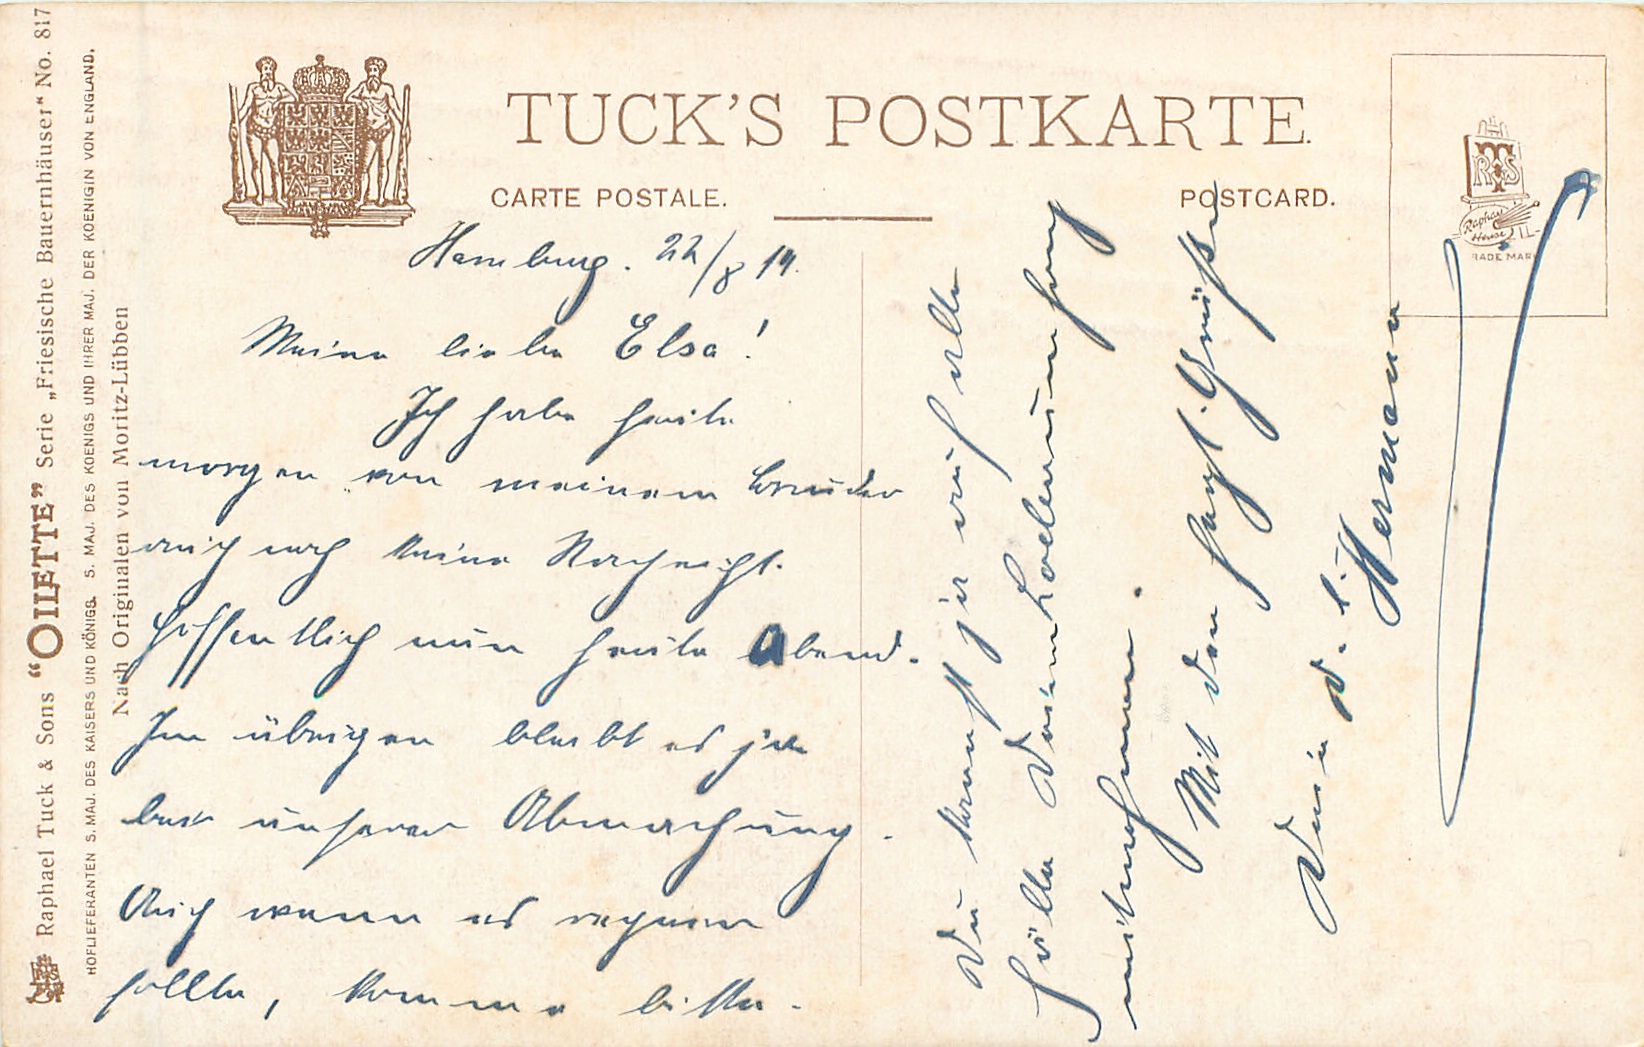 Raphael Tuck & Sons “OILETTE” Serie „Friesische Bauernhäuser“ No. 817
HOFLIEFERANTEN S. MAJ. DES KAISERS UND KÖNIGS. S. MAJ. DES KOENIGS UND IHRER MAJ. DER KOENIGIN VON ENGLAND.
Nach Originalen von Moritz-Lübben
TUCK'S POSTKARTE.
CARTE POSTALE.
POSTCARD.
RTS
Raphael House
TRADE MARK
Hamburg. 22/8 19.
Meine liebe Elsa!
Ich habe heute
morgen von meinem Bruder
auch noch keine Nachricht.
Hoffentlich nun heute Abend.
Im übrigen bleibt es ja
bei unserer Abmachung.
Auch wenn es regnen
sollte, komme bitte.
Du kannst ja auf alle
Fälle Deinen
mitnehmen.
Mit den Grüßen
Dein d. l. Hermann